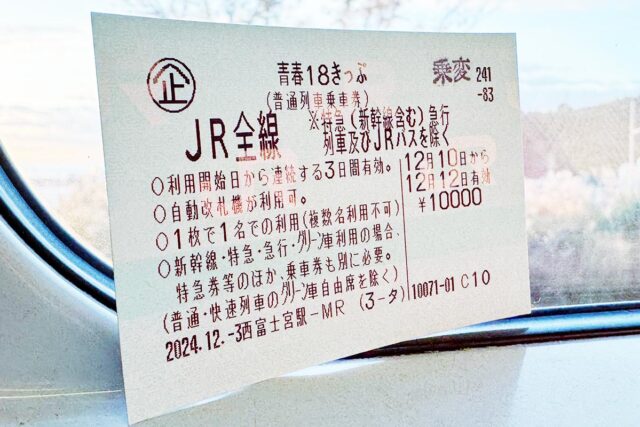 企 青春18きっぷ 乗変 241
(普通列車乗車券) -83
JR全線 ※特急(新幹線含む)急行
列車及びJRバスを除く
○利用開始日から連続する3日間有効。 12月10日から
○自動改札機が利用可。 12月12日有効
○1枚で1名での利用(複数名利用不可) ¥10000
○新幹線・特急・急行・グリーン車利用の場合、
特急券等のほか、乗車券も別に必要。
(普通・快速列車のグリーン車自由席を除く)
2024.12.-3西富士宮駅-MR (3-タ) 10071-01 C10